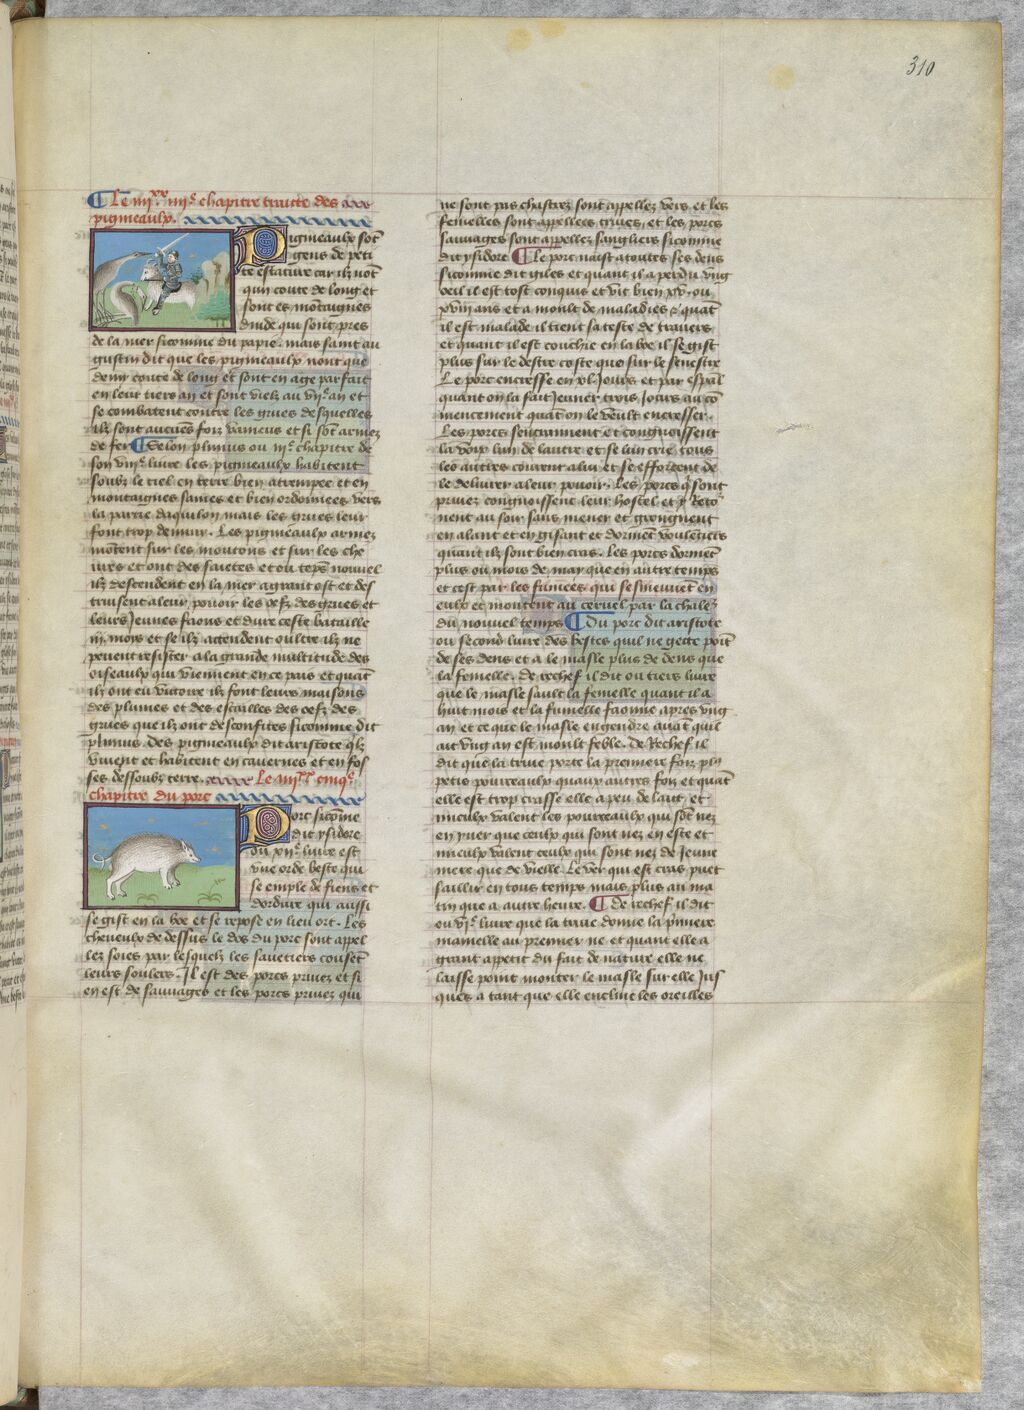 310
¶ Le iiijxx iiije chapitre traicte des
pigmeaulx.
Pigmeaulx sōt
gens de peti
te estature car ilz nōt
quun coute de long et
sont es mōtaignes
dinde qui sont pres
de la mer sicomme dit papie. mais saint au
gustin dit que les pigmeaulx nont que
demi coute de long et sont en age parfait
en leur tiers an et sont vielz au vije an et
se combatent contre les grues desquelles
ilz sont aucūes foiz vaincus et si sōt armez
de fer ¶ Selon plinius ou iije chapitre de
son viije livre les pigmeaulx habitent
soubz le ciel en terre bien atrempee et en
montaignes saines et bien ordonnees vers
la partie daquilon mais les grues leur
font trop dennuy. Les pigmeaulx armez
mōtent sur les moutons et sur les che
ures et ont des saietes et ou tēps nouuel
ilz descendent en la mer a grant ost et des
truisent a leur pouoir les oefz des grues et
leurs jeunes faons et dure ceste bataille
iij mois et se ilz attendent oultre ilz ne
peuent resister a la grande multitude des
oiseaulx qui viennent en ce pais et quāt
ilz ont eu victoire ilz font leurs maisons
des plumes et des escailles des oefz des
grues que ilz ont desconfites sicomme dit
plinius. Des pigmeaulx dit aristote qlz
viuent et habitent en cauernes et en fos
ses dessoubz terre. Le iiijxx cinqe
chapitre du porc
Porc sicōme
dit ysidore
ou xije livre est
vne orde beste qui
se emple de fiens et
dordure qui aussi
se gist en la boe et se repose en lieu ort. Les
cheueulx de dessus le dos du porc sont appel
lez soies par lesquelz les sauetiers cousēt
leurs soulers. Il est des porcs priuez et si
en est de sauuages et les porcs priuez qui
ne sont pas chastrez sont appellez vers et les
femelles sont appellees truies, et les porcs
sauuages sont appellez sangliers sicomme
dit ysidore ¶ Le porc naist atoutes ses dens
sicomme dit giles et quant il a perdu vng
oeil il est tost conquis et vit bien xv. ou
xviij ans et a moult de maladies & quāt
il est malade il tient sa teste de trauers
et quant il est couchie en la boe il se gist
plus sur le destre coste que sur le senestre
Le porc encresse en xl Jours et par espāl
quant on la fait Jeuner trois Jours au cō
mencement quāt on le veult encresser.
Les porcs sentrayment et congnoissent
la voix lun de lautre et se lun crie tous
les autres courent a lui et se efforcent de
le deliurer a leur pouoir. Les porcs q̄ sont
priuez congnoissent leur hostel et y Reto
nent au soir sans mener et grongnent
en alant et en gisant et dormēt voulētiers
quant ilz sont bien cras. Les porcs dormēt
plus ou mois de may que en autre temps
et cest par les fumees qui se smeuuent en
eulx et montent au ceruel par la chaleur
du nouuel temps ¶ Du porc dit aristote
ou second liure des bestes quil ne gecte poīt
de ses dens et a le masle plus de dens que
la femelle. de rechef il dit ou tiers liure
que le masle sault la femelle quant il a
huit mois et la fumelle faonne apres vng
an et ce que le masle engendre auāt quil
ait vng an est moult feble. De Rechef il
dit que la truie porte la premiere foiz plꝰ
petis pourceaulx quaux autres foiz et quāt
elle est trop crasse elle a peu de lait, et
mieulx valent les pourceaulx qui sōt nez
en yuer que ceulx qui sont nez en este et
mieulx valent ceulx qui sont nez de Jeune
mere que de vielle. Le ver qui est cras puet
saillir en tous temps mais plus au ma
tin que a autre heure. ¶ de rechef il dit
ou vje liure que la truie donne la pmiere
mamelle au premier ne et quant elle a
grant appetit du fait de nature elle ne
laisse point monter le masle sur elle Jus
ques a tant que elle encline les oreilles